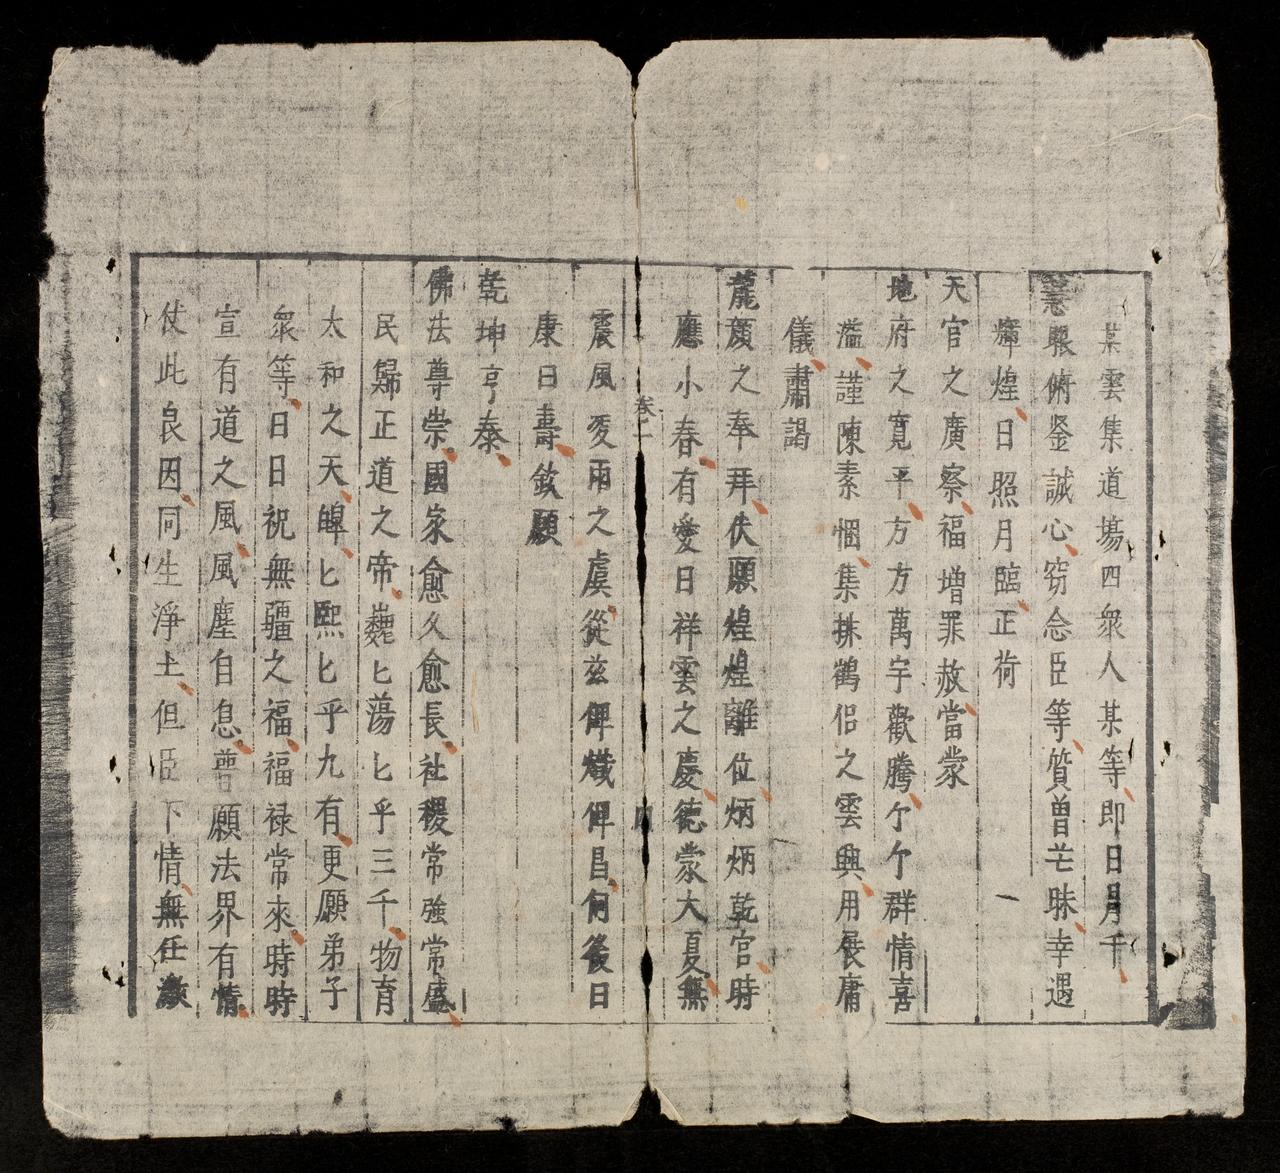 某雲集道塲四衆人某等即日月千
慧眼俯鉴誠心窃念臣等質曽芒昧幸遇
煇煌日照月臨正荷
天官之廣察福增罪赦當蒙
地府之寛平方方萬宇歡騰个个群情喜
溢謹陳素悃集抹鶴侣之雲興用展庸
儀肅謁
龍顔之奉拜伏願煌煌離位炳炳乾宫時
應小春有愛日祥雲之慶德蒙大夏無
震風夌雨之虞從兹俾熾俾昌何後日
康日壽敛願
乾坤亨泰
佛法尊崇國家愈久愈長社稷常強常盛
民歸正道之帝巍匕蕩匕乎三千物育
太和之天皡匕熙匕乎九有更願弟子
衆等日日祝無疆之福福禄常來時時
宣有道之風風塵自息普願法界有情
仗此良因同生淨土但臣下情無任激
卷一